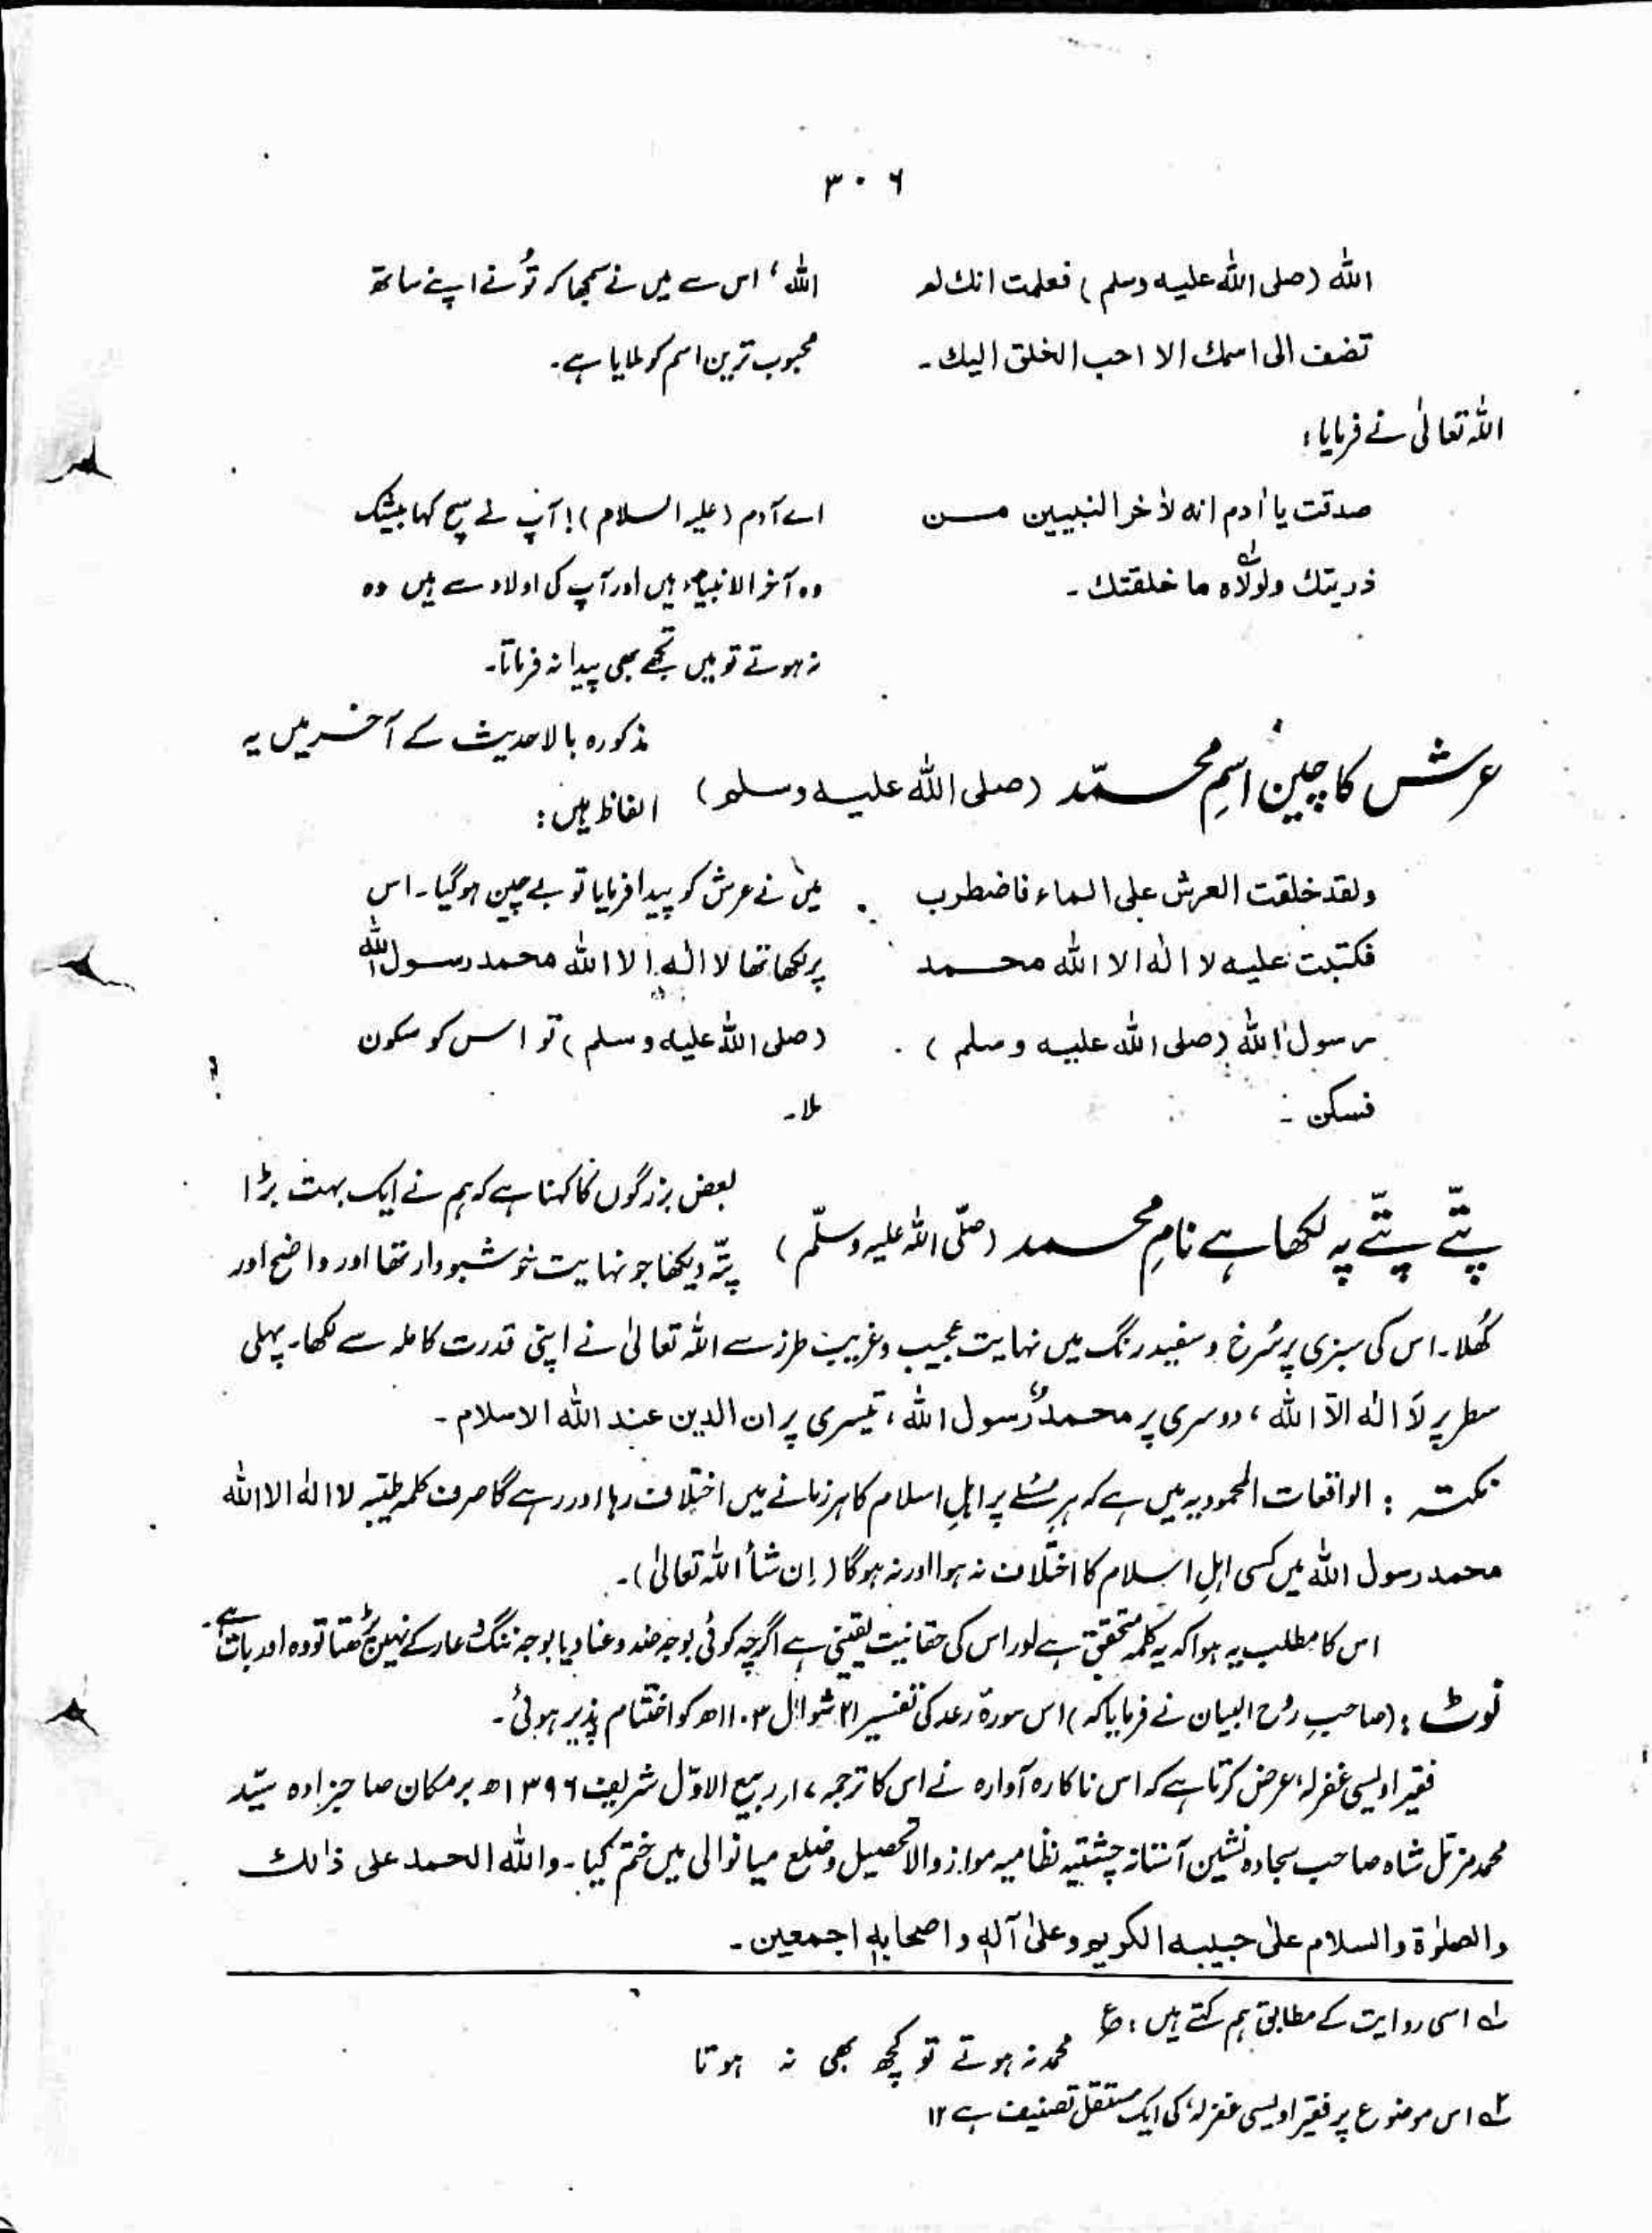 ۳۰۶
الله (صلى الله عليه وسلم) فعلمت انك لم
تضف الى اسمك الا احب الخلق اليك۔
اللہ، اس سے میں نے سمجھا کہ تُو نے اپنے ساتھ
محبوب ترین اسم کو ملایا ہے۔
اللہ تعالیٰ نے فرمایا:
صدقت يا اٰدم انه لاٰخر النبيين من
ذريتك ولولاه ؎۱ ما خلقتك۔
اے آدم (علیہ السلام)! آپ نے سچ کہا بیشک
وہ آخر الانبیاء ہیں اور آپ کی اولاد سے ہیں وہ
نہ ہوتے تو میں تجھے بھی پیدا نہ فرماتا۔
عرش کا چین اسمِ محمّد (صلی اللہ علیہ وسلم)
مذکورہ بالا حدیث کے آخر میں یہ
الفاظ ہیں:
ولقد خلقت العرش على الماء فاضطرب
فكتبت عليه لا اله الا الله محمد
رسول الله (صلى الله عليه وسلم)
فسكن۔
میں نے عرش کو پیدا فرمایا تو بے چین ہوگیا۔ اس
پر لکھا تھا لا الٰہ الا اللہ محمد رسول اللہ
(صلی اللہ علیہ وسلم) تو اس کو سکون
ملا۔
پتّے پتّے پہ لکھا ہے نامِ محمد (صلّی اللہ علیہ وسلّم)
بعض بزرگوں کا کہنا ہے کہ ہم نے ایک بہت بڑا
پتّہ دیکھا جو نہایت خوشبودار تھا اور واضح اور
کُھلا۔ اس کی سبزی پر سُرخ و سفید رنگ میں نہایت عجیب و غریب طرز سے اللہ تعالیٰ نے اپنی قدرت کاملہ سے لکھا۔ پہلی
سطر پر لَا الٰه الّا الله، دوسری پر محمدٌ رسول الله، تیسری پر ان الدين عند الله الاسلام۔
نکتہ : الواقعات المحمودیہ میں ہے کہ ہر مسئلے پر اہلِ اسلام کا ہر زمانے میں اختلاف رہا اور رہے گا صرف کلمہ طیّبہ لا الٰه الا الله
محمد رسول الله میں کسی اہلِ اسلام کا اختلاف نہ ہوا اور نہ ہوگا (اِن شأ اللہ تعالیٰ)۔
اس کا مطلب یہ ہوا کہ یہ کلمہ متحقق ہے اور اس کی حقانیت یقینی ہے اگرچہ کوئی بوجہ ضد و عناد یا بوجہ ننگ و عار کے نہیں پڑھتا تو وہ اور بات ہے۔
نوٹ : (صاحبِ رُوح البیان نے فرمایا کہ) اس سورۃ رعد کی تفسیر ۲۱ شوال ۱۱۰۳ھ کو اختتام پذیر ہوئی۔
فقیر اویسی غفرلہٗ عرض کرتا ہے کہ اس ناکارہ آوارہ نے اس کا ترجمہ ۱۷ ربیع الاوّل شریف ۱۳۹۶ھ بر مکان صاحبزادہ سیّد
محمد مزمّل شاہ صاحب سجادہ نشین آستانہ چشتیہ نظامیہ مواز والا تحصیل و ضلع میانوالی میں ختم کیا۔ والله الحمد على ذالك
والصلوٰة والسلام علىٰ حبيبه الكريم وعلىٰ آلهٖ واصحابهٖ اجمعين۔
؎۱ اسی روایت کے مطابق ہم کہتے ہیں: ع
محمد نہ ہوتے تو کچھ بھی نہ ہوتا
؎۲ اس موضوع پر فقیر اویسی غفرلہٗ کی ایک مستقل تصنیف ہے ۱۲